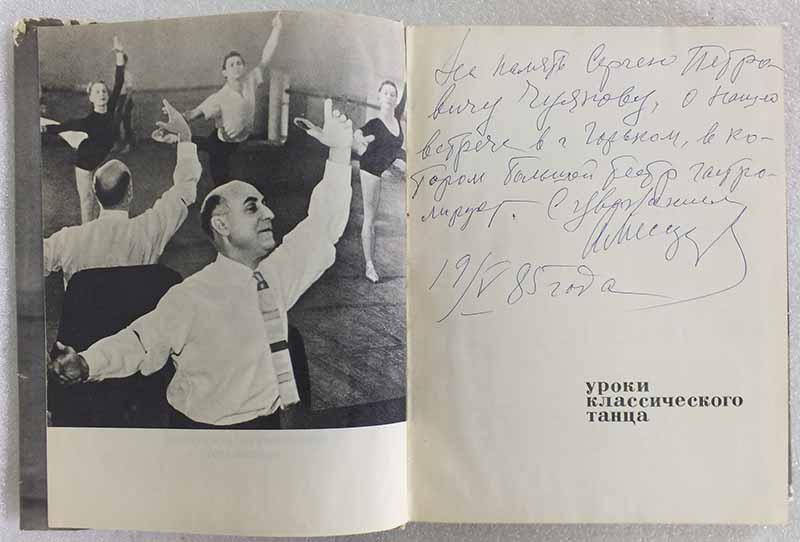 На память Сергею Петро-
вичу Чуянову, о нашей
встрече в г. Горьком, в ко-
тором Большой театр гастро-
лирует. С уважением
19/V 85 года
уроки
классического
танца